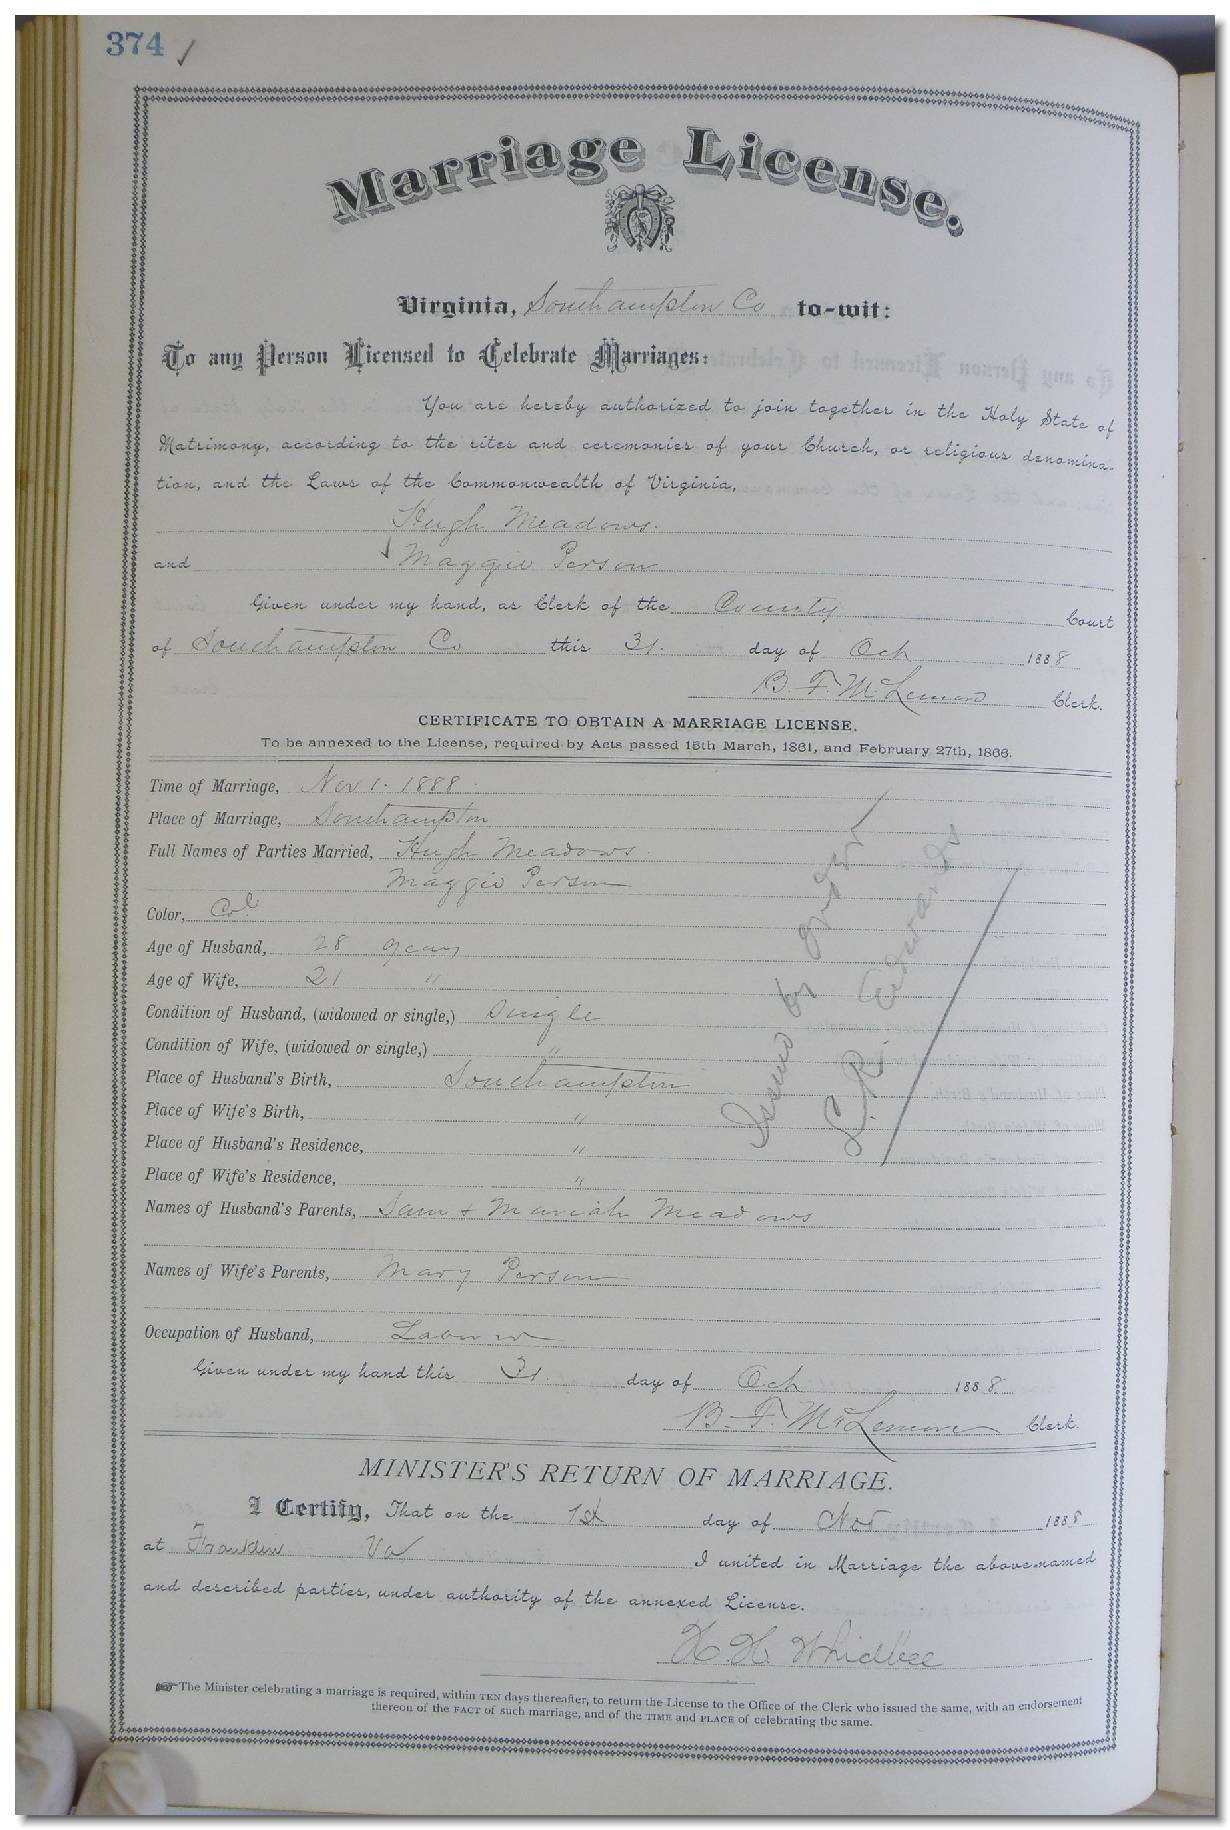 374 ✓
Marriage License.
Virginia, Southampton Co to-wit:
To any Person Licensed to Celebrate Marriages:
You are hereby authorized to join together in the Holy State of
Matrimony, according to the rites and ceremonies of your Church, or religious denomina-
tion, and the Laws of the Commonwealth of Virginia,
Hugh Meadows.
and Maggie Person
Given under my hand, as Clerk of the County Court
of Southampton Co this 31. day of Oct 1888
B. F. McLemore Clerk.
CERTIFICATE TO OBTAIN A MARRIAGE LICENSE.
To be annexed to the License, required by Acts passed 15th March, 1861, and February 27th, 1866.
Time of Marriage, Nov 1. 1888.
Place of Marriage, Southampton
Full Names of Parties Married, Hugh Meadows
Maggie Person
Color, Col
Age of Husband, 28 years
Age of Wife, 21 "
Condition of Husband, (widowed or single,) Single
Condition of Wife, (widowed or single,) "
Place of Husband's Birth, Southampton
Place of Wife's Birth, "
Place of Husband's Residence, "
Place of Wife's Residence, "
Names of Husband's Parents, Sam + Mariah Meadows
Names of Wife's Parents, Mary Person
Occupation of Husband, Laborer
Given under my hand this 31 day of Oct 1888.
B. F. McLemore Clerk.
Issued by order
L. R. Edwards
MINISTER'S RETURN OF MARRIAGE.
I Certify, That on the 1st day of Nov 1888
at Franklin Va I united in Marriage the above-named
and described parties, under authority of the annexed License.
H. H. Whidbee
The Minister celebrating a marriage is required, within TEN days thereafter, to return the License to the Office of the Clerk who issued the same, with an endorsement
thereon of the FACT of such marriage, and of the TIME and PLACE of celebrating the same.